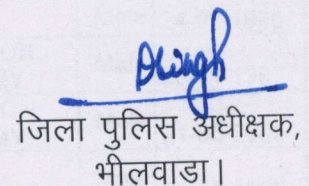 जिला पुलिस अधीक्षक,
भीलवाडा।